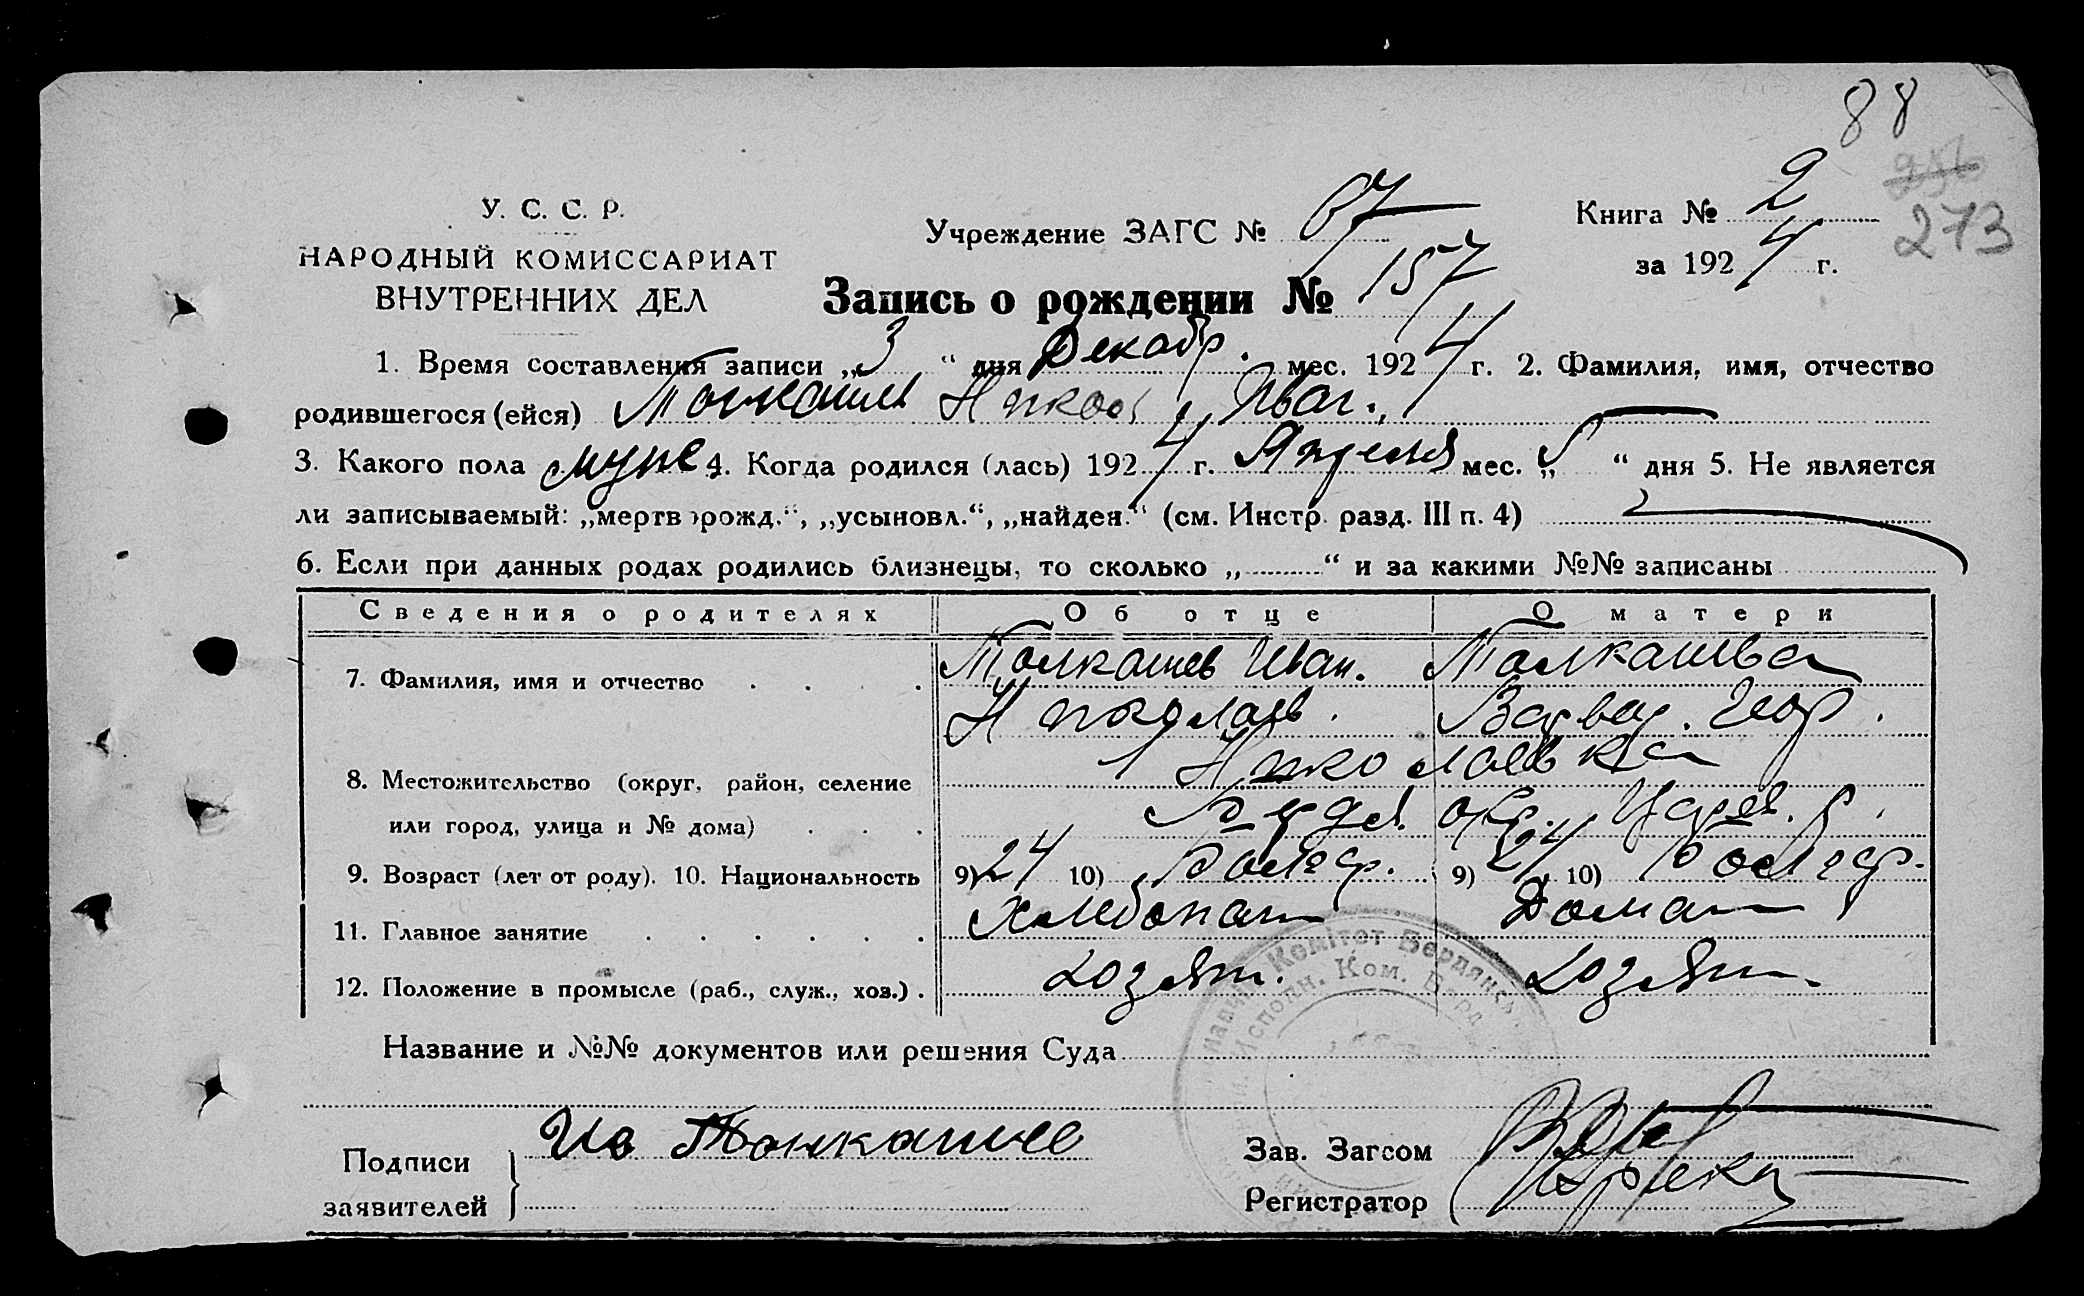 88
256
273
У. С. С. Р.
НАРОДНЫЙ КОМИССАРИАТ
ВНУТРЕННИХ ДЕЛ
Учреждение ЗАГС № 67
Книга № 2
за 1924 г.
Запись о рождении № 157
1. Время составления записи „3“ дня Декабр. мес. 1924 г. 2. Фамилия, имя, отчество
родившегося (ейся) Николай Иван.
3. Какого пола муже 4. Когда родился (лась) 1924 г. Апреля мес. „5“ дня 5. Не является
ли записываемый: „мертворожд.“, „усыновл.“, „найден.“ (см. Инстр. разд. III п. 4)
6. Если при данных родах родились близнецы, то сколько „ “ и за какими №№ записаны
Сведения о родителях Об отце О матери
7. Фамилия, имя и отчество Толкашев Иван. Толкашева
Николаев. Варвар. Геор.
Николаевка
8. Местожительство (округ, район, селение
или город, улица и № дома) окр. Царев. р.
9. Возраст (лет от роду). 10. Национальность 9) 24 10) Болгар. 9) 24 10) Болгар.
11. Главное занятие Хлебопаш Домаш
12. Положение в промысле (раб., служ., хоз.) хозяин. хозяин.
Комітет Бердянсь
Исполн. Ком. Берд
Название и №№ документов или решения Суда
Подписи
заявителей
Ив Толкашев
Зав. Загсом
Регистратор